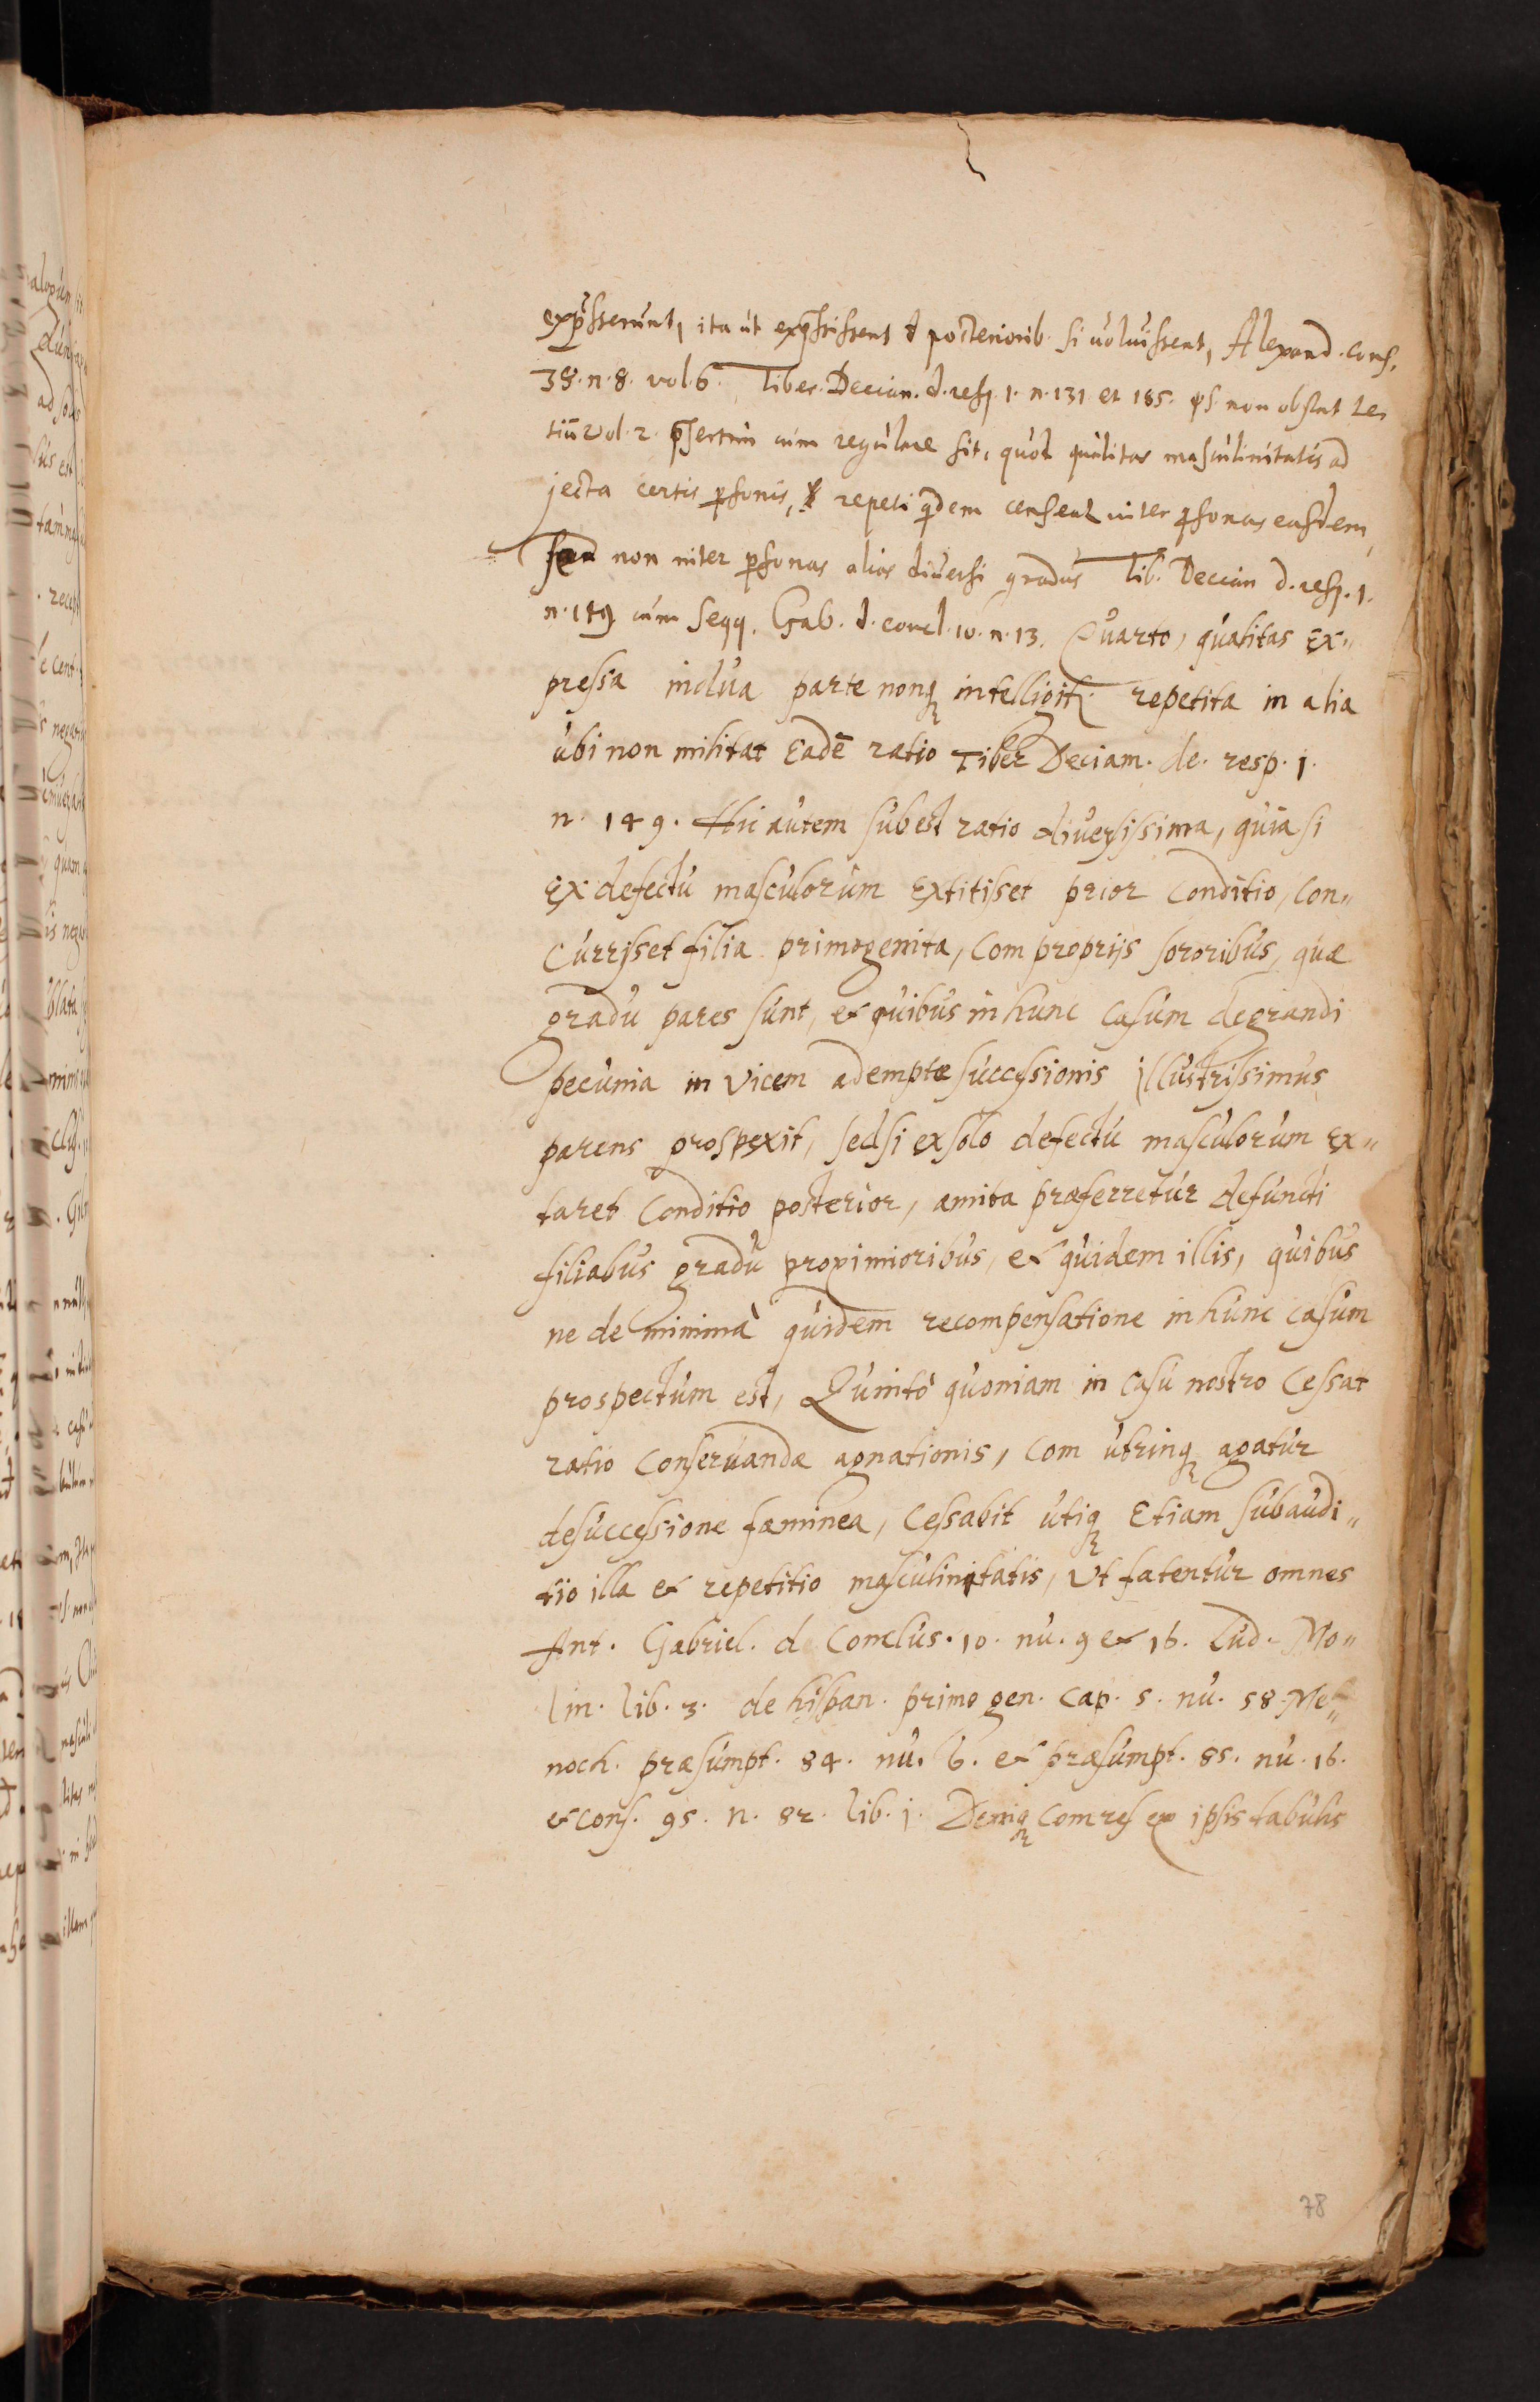 exp̄sserunt, ita ut exp̄ssissent d posteriorib. si voluissent, Alexand. cons.
38. n. 8. vol. 6. Tiber. Decian. d. resp. 1. n. 131 et 185. non obstat
vol. 2. p̄sertim cum regulare sit, quod qualitas masculinitatis ad
jecta certis p̱sonis, repeti q̄dem censeat inter p̱sonas easdem,
sed non inter p̱sonas alias diversi gradus Tib. Decian d. resp. 1.
n. 149 cum seqq. Gab. d. concl. 10. n. 13. Quarto, qualitas ex„
pressa in dua parte nonq; intelligit repetita in alia
ubi non militat eadē ratio Tiber Deciam. de. resp. 1.
n. 149. Hic autem subest ratio diversissima, quia si
ex defectu masculorum extitisset prior conditio, con„
currisset filia primogenita, com proprijs sororibus, quæ
gradu pares sunt, et quibus in hunc casum degrandi
pecunia in vicem ademptæ successionis illustrissimus
parens prospexit, sed si ex solo defectu masculorum ex„
taret conditio posterior, amita præferretur defuncti
filiabus gradu proximioribus, et quidem illis, quibus
ne de minima quidem recompensatione in hunc casum
prospectum est, Quinto quoniam in casu nostro cessat
ratio conservandæ agnationis, com utrinq; agatur
de successione fæminea, cessabit utiq; etiam subaudi„
tio illa et repetitio masculinitatis, ut fatentur omnes
Ant. Gabriel. de Conclus. 10. nu. 9 et 16. Lud. Mo„
lin. lib. 3. de hispan. primogen. cap. 5. nu. 58. Me„
noch. præsumpt. 84. nu. 6. et præsumpt. 85. nu. 16.
et cons. 95. n. 82. lib. 1. Deniq; com res ex ipsis tabulis
78